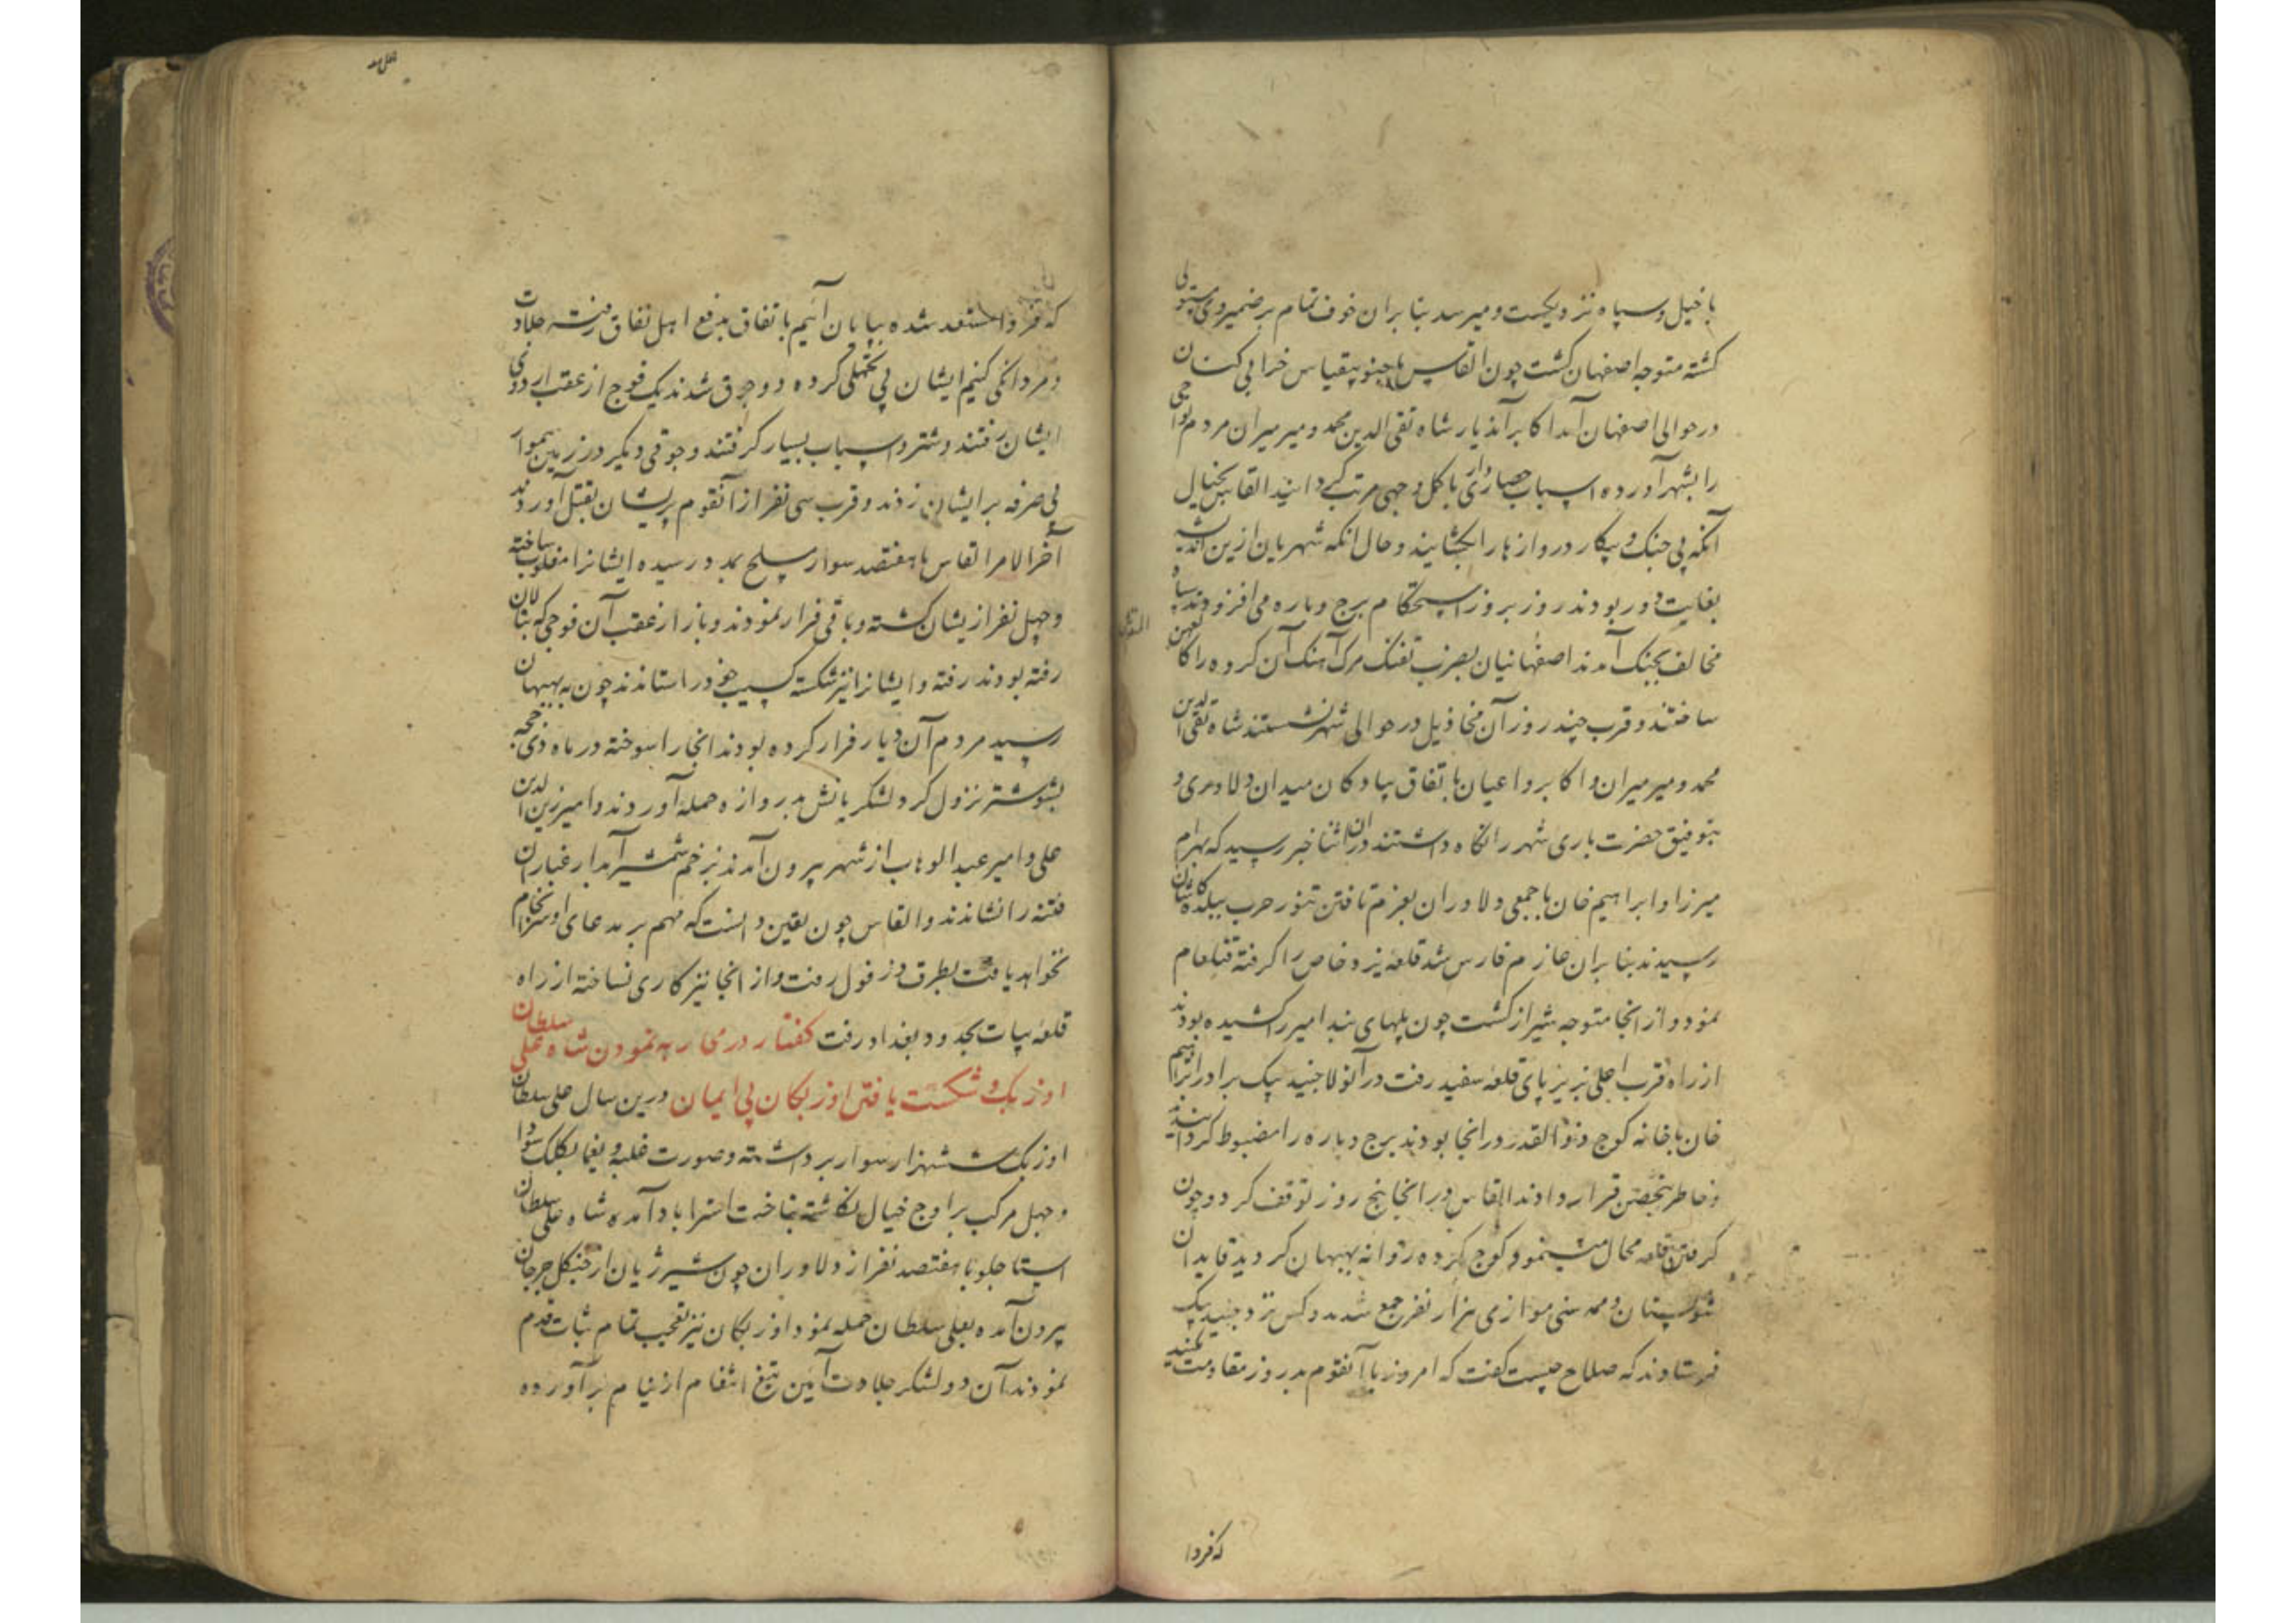 با خیل و سپاه نزدیکست و میرسد بنابران خوف تمام بر ضمیر وی مستولی
کشته متوجه اصفهان کشت چون القاس با جنود بیقیاس خرابی کنان
در حوالی اصفهان آمد اکابر آندیار شاه تقی الدین محمد و میر میران مردم نواحی
را بشهر آورده اسباب حصارداری باکمل وجهی مرتب کردانیدند القاس بخیال
آنکه بی جنک و پیکار دروازها را بکشایند و حال انکه شهریان ازین اندیشه
بغایت دور بودند روز بروز استحکام برج و باره می افزودند سپاه
مخالف بجنک آمدند اصفهانیان بضرب تفنک مرک آهنک آن کروه را کالعهن المنفوش
ساختند و قرب چند روز آن مخاذیل در حوالی شهر نشستند شاه تقی الدین
محمد و میر میران و اکابر و اعیان باتفاق پیادکان میدان دلاوری و
بتوفیق حضرت باری شهر را نکاه داشتند در ان اثنا خبر رسید که بهرام
میرزا و ابراهیم خان با جمعی دلاوران بعزم تافتن تنور حرب ببلده کاشان
رسیدند بنابران عازم فارس شد قلعه یزدخاص را کرفته قتلعام
نمود و از انجا متوجه شیراز کشت چون پلهای بند امیر را کشیده بودند
از راه قرب اجلی نیریز پای قلعه سفید رفت در آنولا جنید بیک برادر ابراهیم
خان با خانه کوچ ذوالقدر در انجا بودند برج و باره را مضبوط کردانیدند
و خاطر بتحصن قرار دادند القاس در انجا پنج روز توقف کرد و چون
کرفتن قلعه محال مینمود کوچ کرده روانه بهبهان کردید قایدان
شولستان و ممسنی موازی هزار نفر جمع شدند و کس نزد جنید بیک
فرستادند که صلاح چیست کفت که امروز با آنقوم بد روز مقاومت نمکنید
که فردا
که فردا مستعد شده بپایان آئیم باتفاق بدفع اهل نفاق رفته جلادت
و مردانکی کنیم ایشان بی تحملی کرده دو جوق شدند یک فوج از عقب اردوی
ایشان رفتند و شتر و اسباب بسیار کرفتند و جوقی دیکر در زمین هموار
بی صرفه بر ایشان زدند و قرب سی نفر از آنقوم پریشان بقتل آوردند
آخر الامر القاس با هفتصد سوار مسلح بمدد رسیده ایشانرا مغلوب ساخته
و چهل نفر ازیشان کشته و باقی فرار نمودند و باز از عقب آن فوجی که بتالان
رفته بودند رفته و ایشانرا نیز شکسته اسب خود را ستاندند چون به بهبهان
رسید مردم آن دیار فرار کرده بودند انجا را سوخته در ماه ذی حجه
بشوشتر نزول کرد لشکریانش بدروازه حمله آوردند و امیر زین الدین
علی و امیر عبد الوهاب از شهر بیرون آمدند بزخم شمشیر آبدار غبار ان
فتنه را نشاندند و القاس چون یقین دانست که مهم بر مدعای او سرانجام
نخواهد یافت بطرف دزفول رفت و از انجا نیز کاری نساخته از راه
قلعه بیات بحدود بغداد رفت کفتار در محاربه نمودن شاه علی سلطان
اوزبک و شکست یافتن اوزبکان بی ایمان درین سال علی سلطان
اوزبک ششهزار سوار برداشته و صورت غلبه و یغما بکلک سودا
و جهل مرکب بر اوج خیال نکاشته بتاخت استراباد آمده شاه علی سلطان
استاجلو با هفتصد نفر از دلاوران چون شیر ژیان از جنکل جرجان
بیرون آمده بعلی سلطان حمله نمود اوزبکان نیز بعجب تمام ثبات قدم
نمودند آن دو لشکر جلادت آئین تیغ انتقام از نیام برآورده